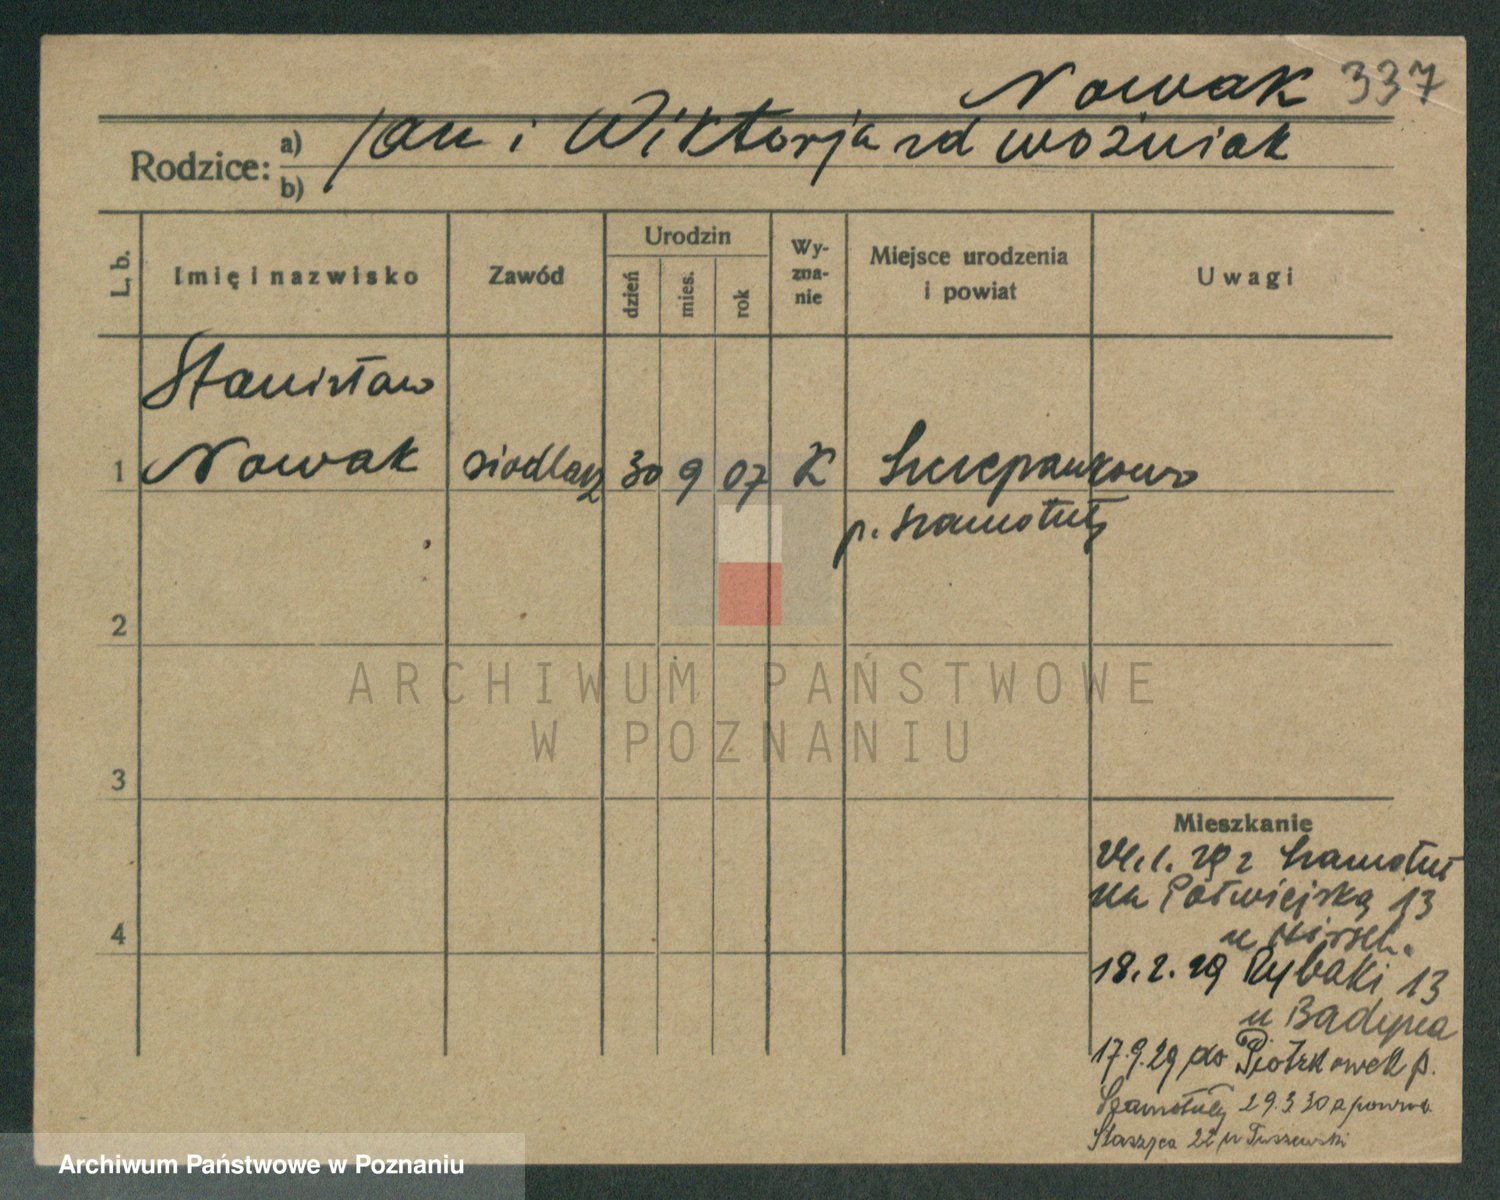 Nowak 337
Rodzice: a) Jan i Wiktorja zd Woźniak
b)
L. b. Imię i nazwisko Zawód Urodzin dzień mies. rok Wy-zna-nie Miejsce urodzenia i powiat Uwagi
Stanisław
1 Nowak siodlarz 30 9 07 K Szczepankowo
p. Szamotuły
2
ARCHIWUM PAŃSTWOWE
W POZNANIU
3
Mieszkanie
1. 29 z Szamotuł
na Półwiejską 13
4
u Hirsch.
18.2.29 Rybaki 13
u
17.9.29 do Piotrkowek p.
Szamotuły 29.3 30 z powrot
Staszyca 22 u Tuszewski
Archiwum Państwowe w Poznaniu